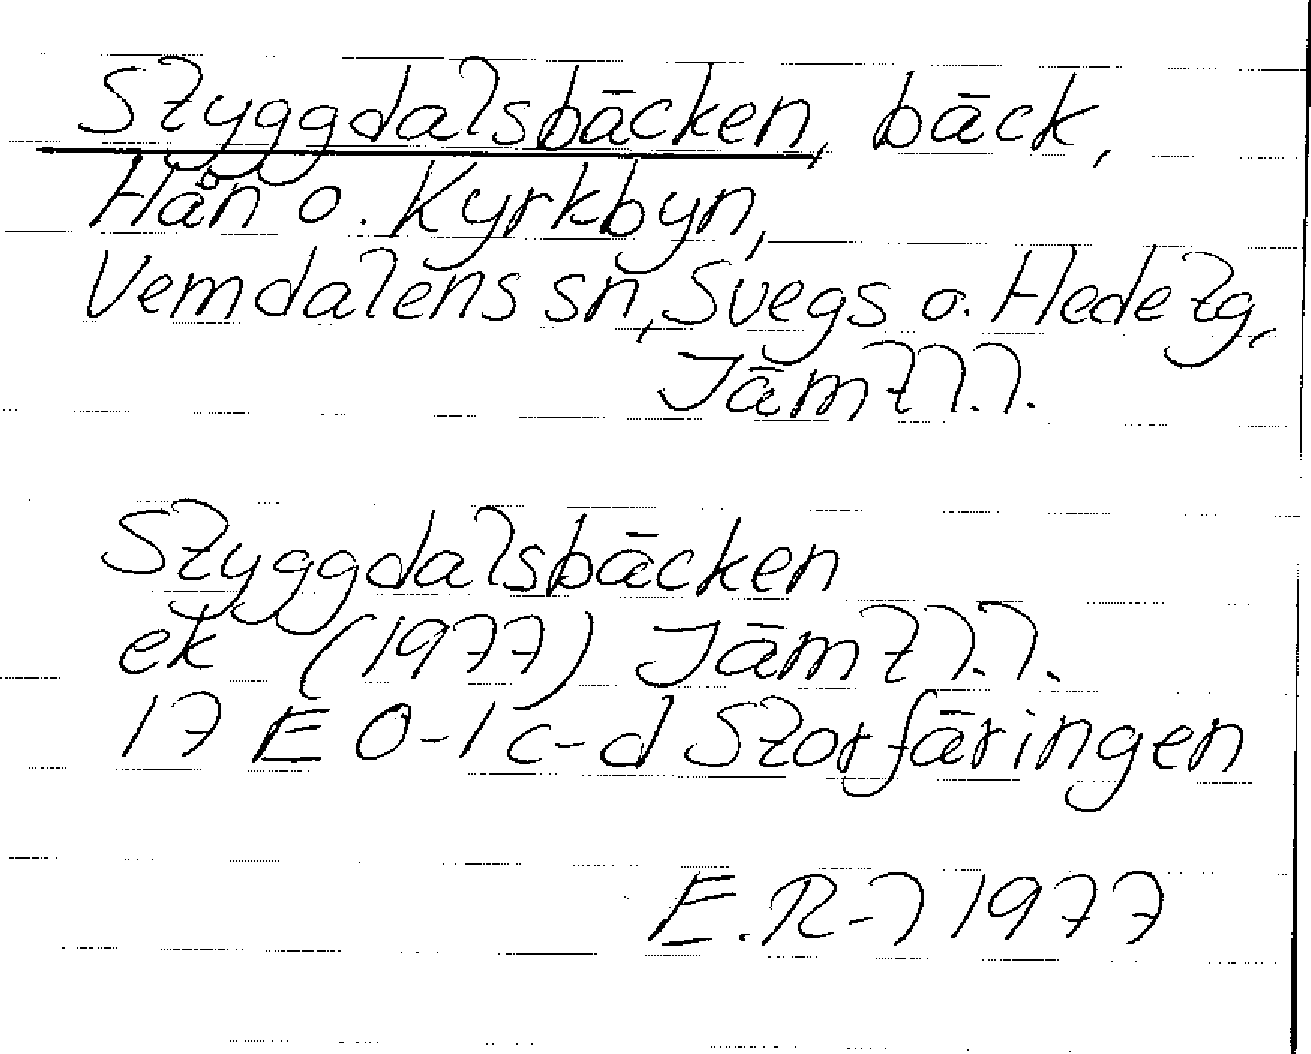 Styggdalsbäcken, bäck,
Hån o. Kyrkbyn,
Vemdalens sn, Svegs o. Hede tg,
Jämtl.l.
Styggdalsbäcken
ek (1977) Jämtl.l.
17 E 0-1 c-d Storfäringen
E.R-l 1977